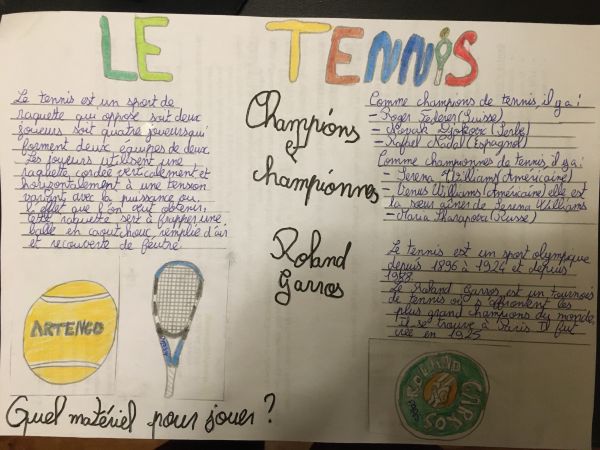 LE TENNIS
Le tennis est un sport de
raquette qui oppose soit deux
joueurs soit quatre joueurs qui
forment deux équipes de deux
Les joueurs utilisent une
raquette cordée verticalement et
horizontalement à une tension
variant avec la puissance ou
l'effet que l'on veut obtenir.
Cette raquette sert à frapper une
balle en caoutchouc, remplie d'air
et recouverte de feutre.
Champions
et
championnes
Comme champions de tennis il y a :
- Roger Federer (Suisse)
- Novak Djokovic (Serbe)
- Rafael Nadal (Espagnol)
Comme championnes de tennis, il y a :
- Serena Williams (Américaine)
- Venus Williams (Américaine) elle est
la sœur aînée de Serena Williams
- Maria Sharapova (Russe)
Roland
Garros
Le tennis est un sport olympique
depuis 1896 à 1924 et depuis
1988
Le Roland Garros est un tournois
de tennis où s'affrontent les
plus grand champions du monde.
Il se trouve à Paris. Il fut
crée en 1925
ARTENGO
ROLAND
GARROS
PARIS
Quel matériel pour jouer ?